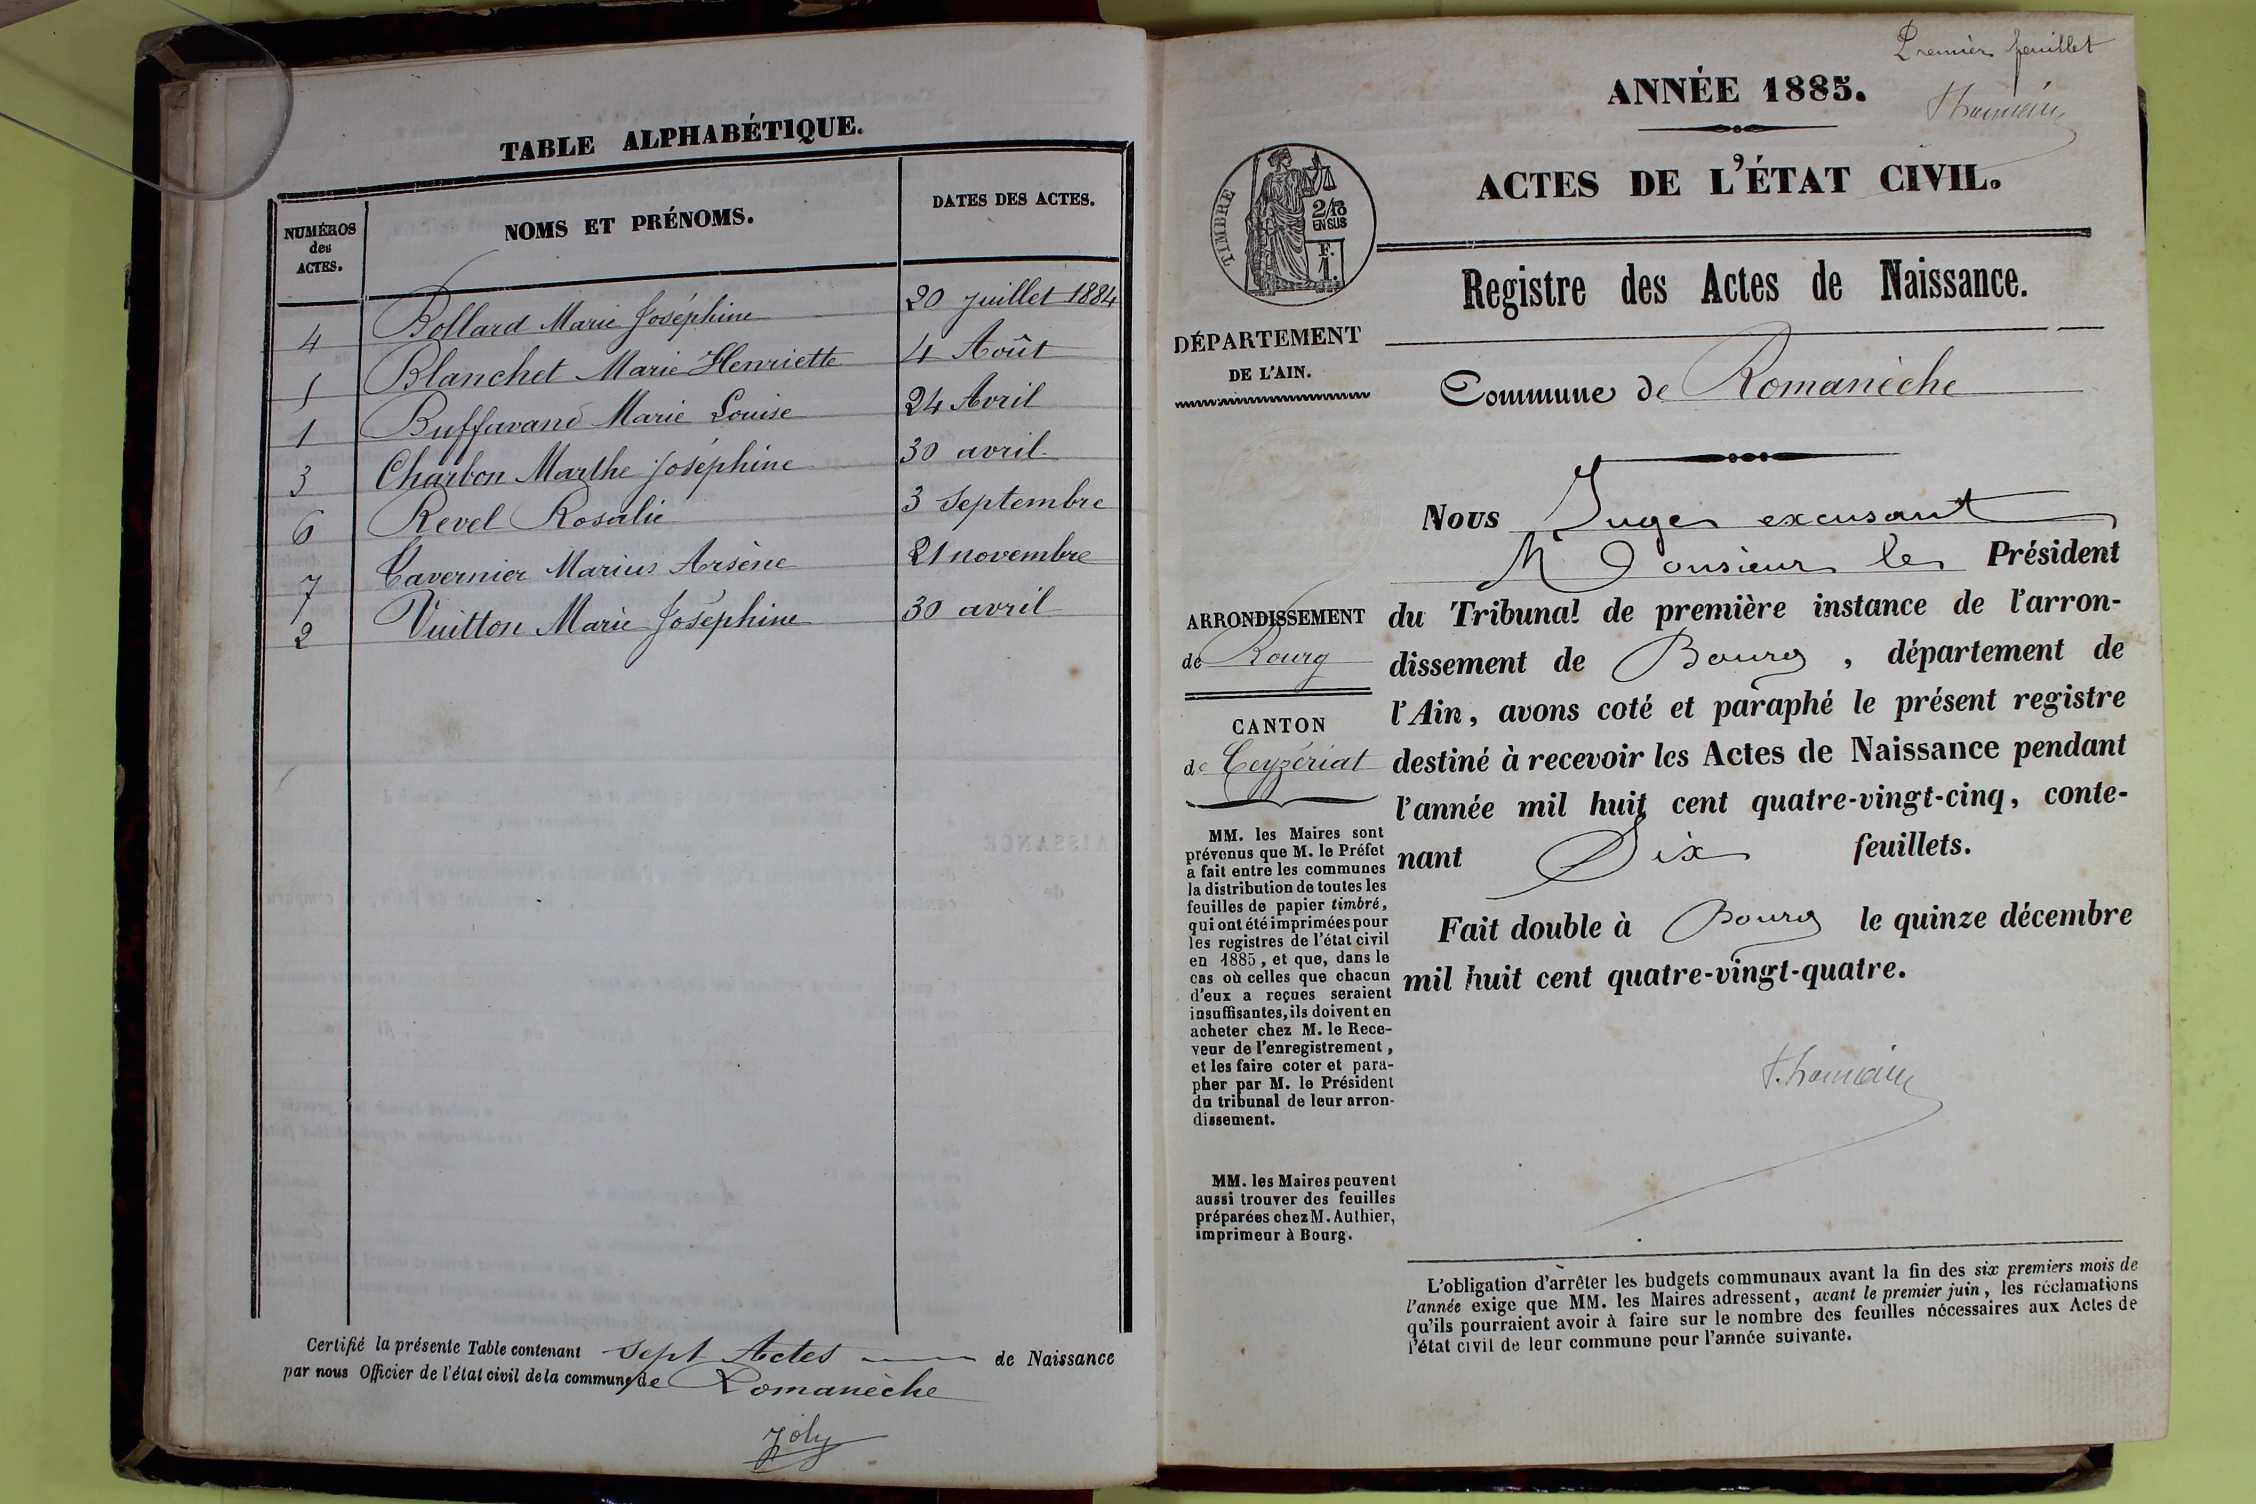 TABLE ALPHABÉTIQUE.
NUMÉROS
des
ACTES.
NOMS ET PRÉNOMS.
DATES DES ACTES.
4 Bollard Marie Joséphine 20 juillet 1884
5 Blanchet Marie Henriette 4 Août
1 Buffavand Marie Louise 24 Avril
3 Charbon Marthe Joséphine 30 avril
6 Revel Rosalie 3 Septembre
7 Tavernier Marius Arsène 21 novembre
2 Vuitton Marie Joséphine 30 avril
Certifié la présente Table contenant sept Actes de Naissance
par nous Officier de l'état civil de la commune de Romanèche
Joly
Premier feuillet
ANNÉE 1885.
ACTES DE L'ÉTAT CIVIL.
TIMBRE
2/10
EN SUS
F.
1.
Registre des Actes de Naissance.
DÉPARTEMENT
DE L'AIN.
Commune de Romanèche
ARRONDISSEMENT
de Bourg
CANTON
de Ceyzériat
MM. les Maires sont
prévenus que M. le Préfet
a fait entre les communes
la distribution de toutes les
feuilles de papier timbré,
qui ont été imprimées pour
les registres de l'état civil
en 1885, et que, dans le
cas où celles que chacun
d'eux a reçues seraient
insuffisantes, ils doivent en
acheter chez M. le Rece-
veur de l'enregistrement,
et les faire coter et para-
pher par M. le Président
du tribunal de leur arron-
dissement.
MM. les Maires peuvent
aussi trouver des feuilles
préparées chez M. Authier,
imprimeur à Bourg.
Nous Juge excusant
Monsieur le Président
du Tribunal de première instance de l'arron-
dissement de Bourg, département de
l'Ain, avons coté et paraphé le présent registre
destiné à recevoir les Actes de Naissance pendant
l'année mil huit cent quatre-vingt-cinq, conte-
nant Six feuillets.
Fait double à Bourg le quinze décembre
mil huit cent quatre-vingt-quatre.
L'obligation d'arrêter les budgets communaux avant la fin des six premiers mois de
l'année exige que MM. les Maires adressent, avant le premier juin, les réclamations
qu'ils pourraient avoir à faire sur le nombre des feuilles nécessaires aux Actes de
l'état civil de leur commune pour l'année suivante.